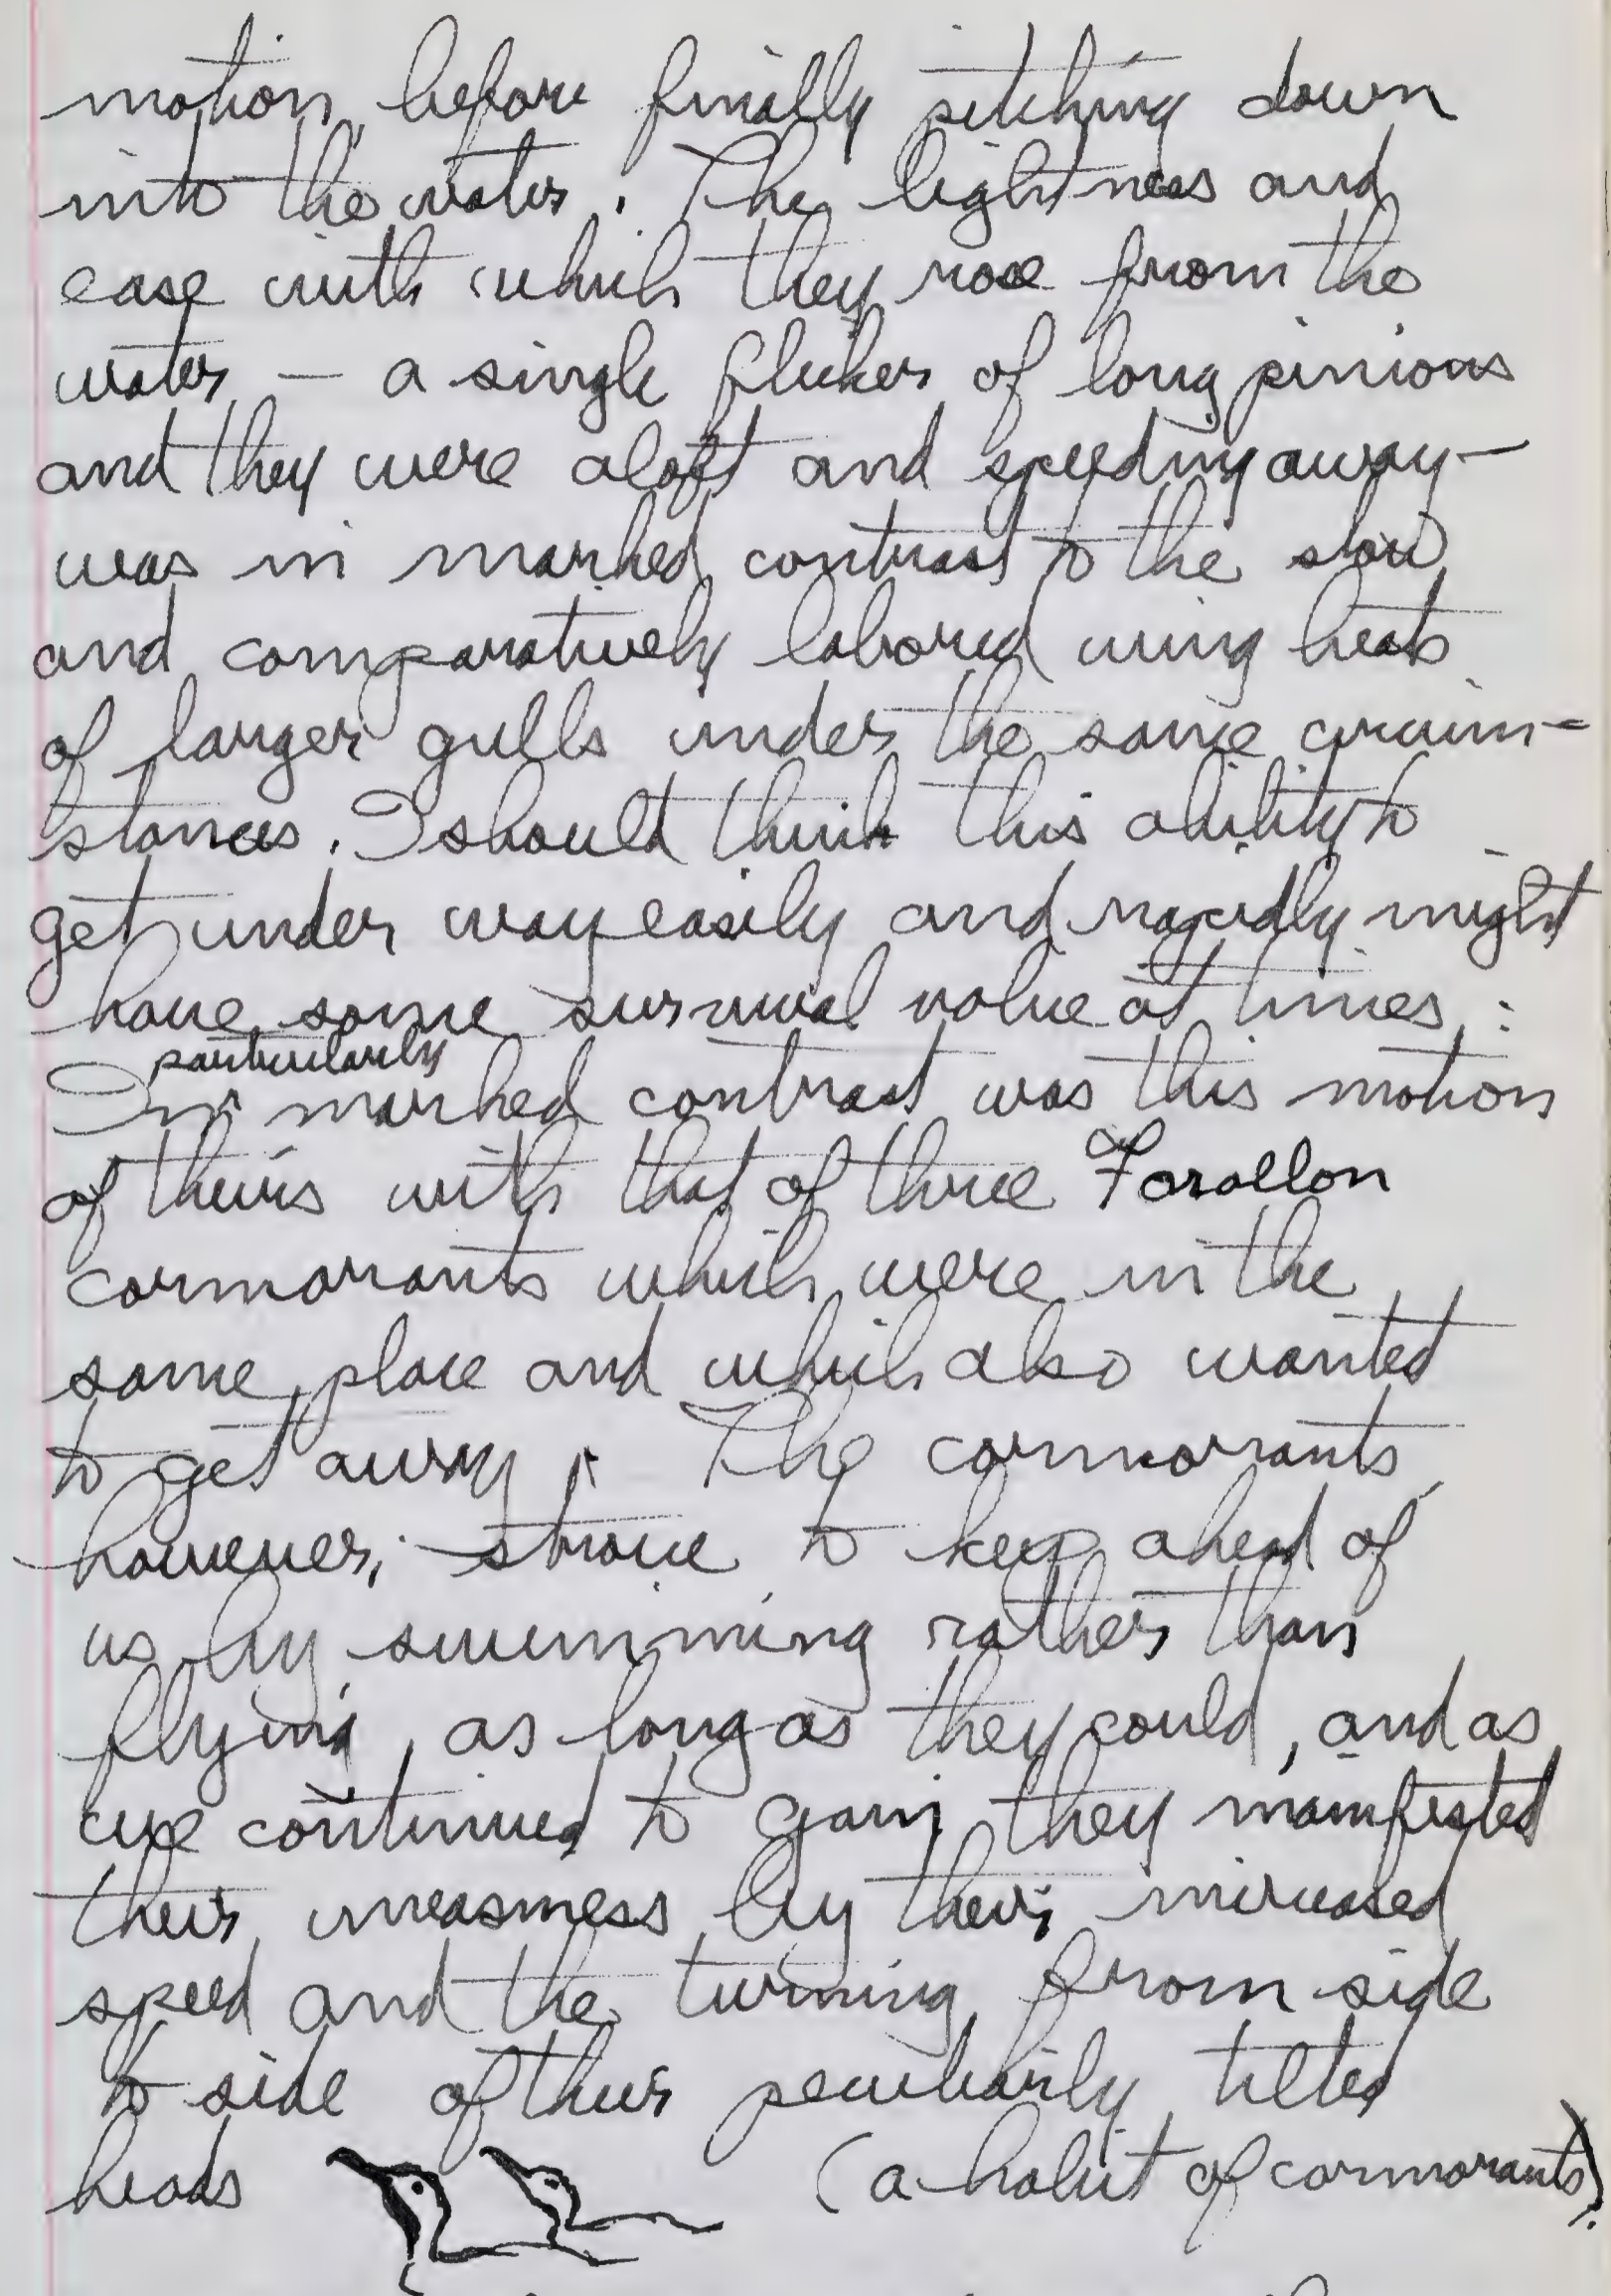 motion, before finally pitching down
into the water. The lightness and
ease with which they rose from the
water — a single flicker of long pinions
and they were aloft and speeding away —
was in marked contrast to the slow
and comparatively labored wing beats
of larger gulls under the same circum-
stances. I should think this ability to
get under way easily and rapidly might
have some survival value at times.
particularly
In marked contrast was this motion
of theirs with that of three Farallon
cormorants which were in the
same place and which also wanted
to get away. The cormorants,
however, strove to keep ahead of
us by swimming rather than
flying, as long as they could, and as
we continued to gain they manifested
their uneasiness by their increased
speed and the turning from side
to side of their peculiarly tilted
heads (a habit of cormorants).